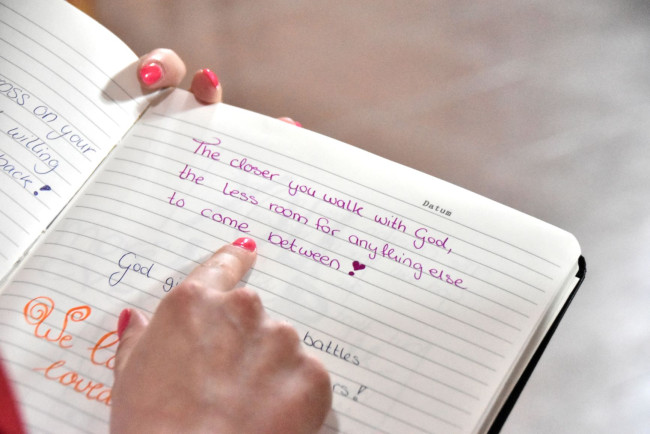 oss on your
willing
back!
Datum
The closer you walk with God,
the less room for anything else
to come between!
God gi
battles
rs!
We lo
loved